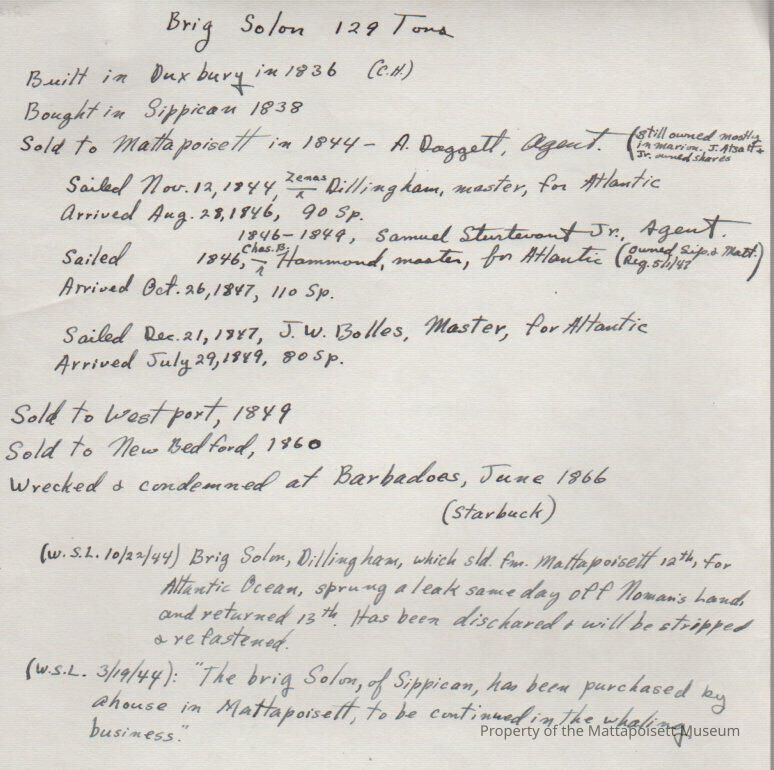 Brig Solon 129 Tons
Built in Duxbury in 1836 (C.H.)
Bought in Sippican 1838
Sold to Mattapoisett in 1844 - A. Daggett, Agent. (Still owned mostly
in Marion. J. Atsatt &
Jr. owned shares
Sailed Nov. 12, 1844, Zenas Dillingham, master, for Atlantic
Arrived Aug. 28, 1846, 90 Sp.
1846-1849, Samuel Sturtevant Jr., Agent.
Sailed 1846, Chas. B. Hammond, master, for Atlantic (owned Sip. & Matt.)
Reg. 5/1/47
Arrived Oct. 26, 1847, 110 Sp.
Sailed Dec. 21, 1847, J. W. Bolles, Master, for Atlantic
Arrived July 29, 1849, 80 Sp.
Sold to Westport, 1849
Sold to New Bedford, 1860
Wrecked & condemned at Barbadoes, June 1866
(Starbuck)
(W.S.L. 10/22/44) Brig Solon, Dillingham, which sld. fm. Mattapoisett 12th, for
Atlantic Ocean, sprung a leak same day off Noman's Land,
and returned 13th. Has been dischared & will be stripped
& refastened.
(W.S.L. 3/19/44): "The brig Solon, of Sippican, has been purchased by
a house in Mattapoisett, to be continued in the whaling
business."
Property of the Mattapoisett Museum